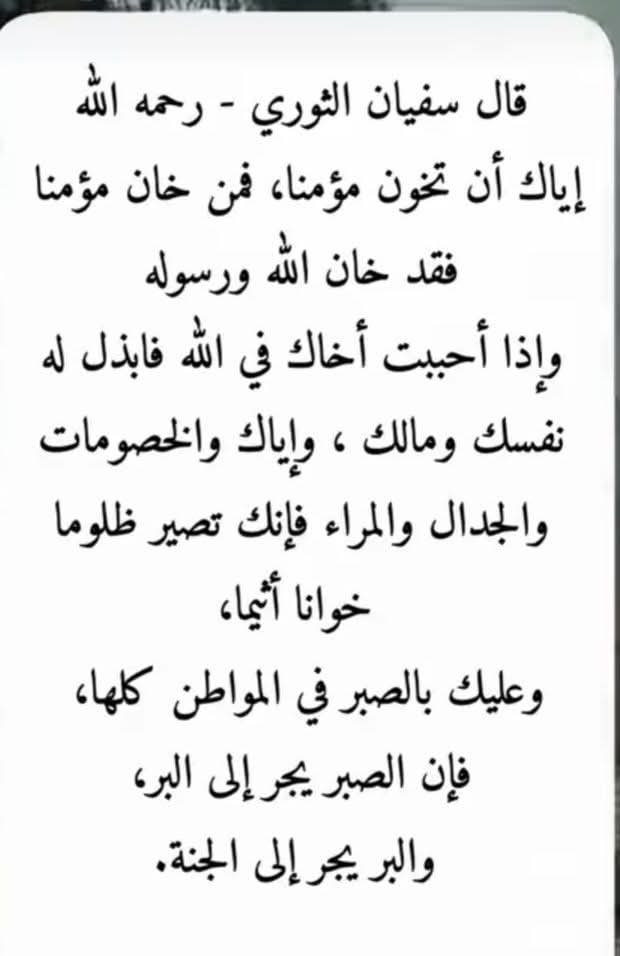 قال سفيان الثوري - رحمه الله
إياك أن تخون مؤمنا، فمن خان مؤمنا
فقد خان الله ورسوله
وإذا أحببت أخاك في الله فابذل له
نفسك ومالك ، وإياك والخصومات
والجدال والمراء فإنك تصير ظلوما
خوانا أثيما،
وعليك بالصبر في المواطن كلها،
فإن الصبر يجر إلى البر،
والبر يجر إلى الجنة.